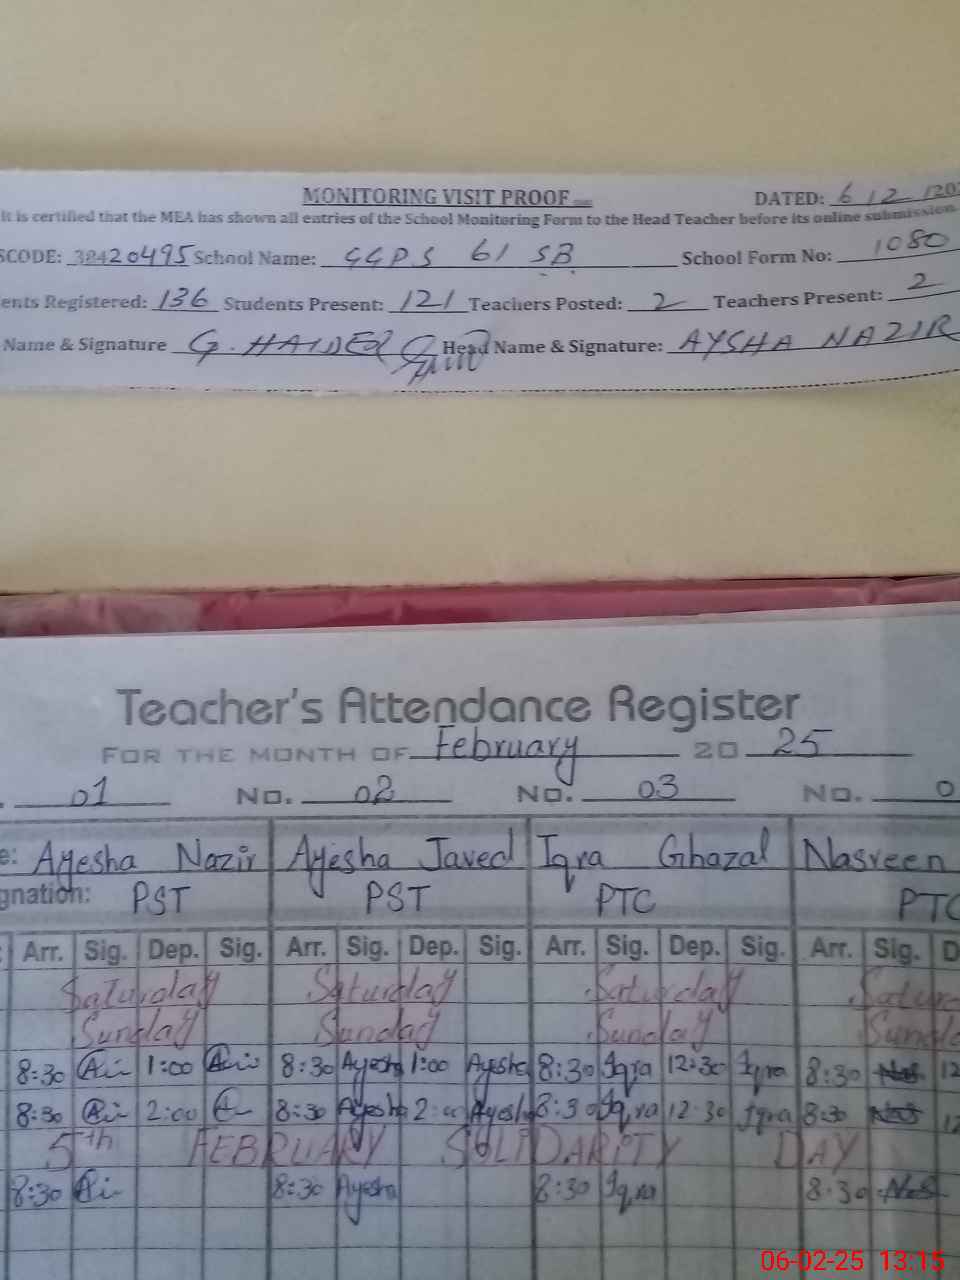 MONITORING VISIT PROOF DATED: 6 / 2 / 202
It is certified that the MEA has shown all entries of the School Monitoring Form to the Head Teacher before its online submission
SCODE: 38420495 School Name: GGPS 61 SB School Form No: 1080
ents Registered: 136 Students Present: 121 Teachers Posted: 2 Teachers Present: 2
Name & Signature G. HAIDER Head Name & Signature: AYSHA NAZIR
Teacher's Attendance Register
FOR THE MONTH OF February 20 25
. 01 NO. 02 NO. 03 NO. 0
e: Ayesha Nazir Ayesha Javed Iqra Ghazal Nasreen
gnation: PST PST PTC PTC
Arr. Sig. Dep. Sig. Arr. Sig. Dep. Sig. Arr. Sig. Dep. Sig. Arr. Sig. D
Saturday Saturday Saturday Satur
Sunday Sunday Sunday Sund
8:30 1:00 8:30 Ayesha 1:00 Ayesha 8:30 Iqra 12:30 Iqra 8:30 Nas. 12
8:30 2:00 8:30 Ayesha 2:00 Ayesha 8:30 Iqra 12:30 Iqra 8:30 Nas 12
5th FEBRUARY SOLIDARITY DAY
8:30 8:30 Ayesha 8:30 Iqra 8:30 Nas
06-02-25 13:15